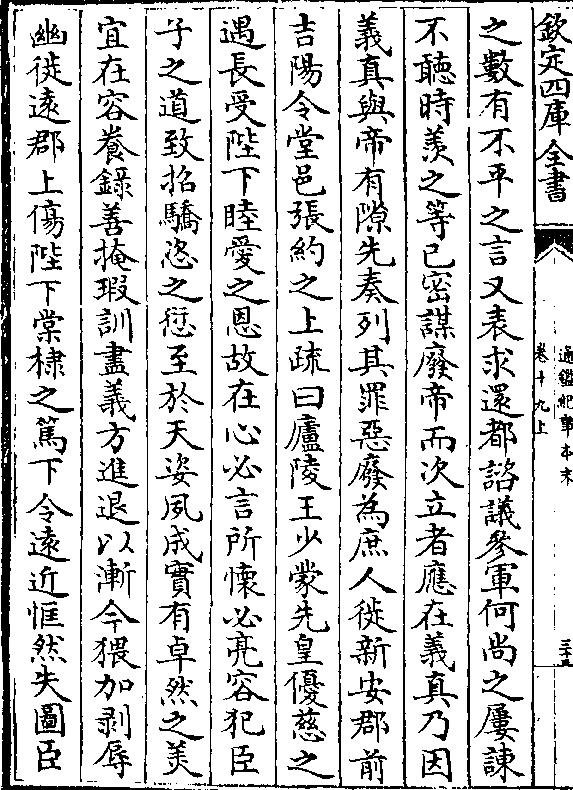 欽定四庫全書
通鑑紀事本末
卷十九上
三十五
之數有不平之言又表求還都諮議參軍何尚之屢諫
不聽時羨之等已密謀廢帝而次立者應在義真乃因
義真與帝有隙先奏列其罪惡廢為庶人徙新安郡前
吉陽令堂邑張約之上疏曰廬陵王少蒙先皇優慈之
遇長受陛下睦愛之恩故在心必言所懷必亮容犯臣
子之道致招驕恣之愆至於天姿夙成實有卓然之美
宜在容養錄善掩瑕訓盡義方進退以漸今猥加剥辱
幽徙遠郡上傷陛下棠棣之篤下令遠近恇然失圖臣